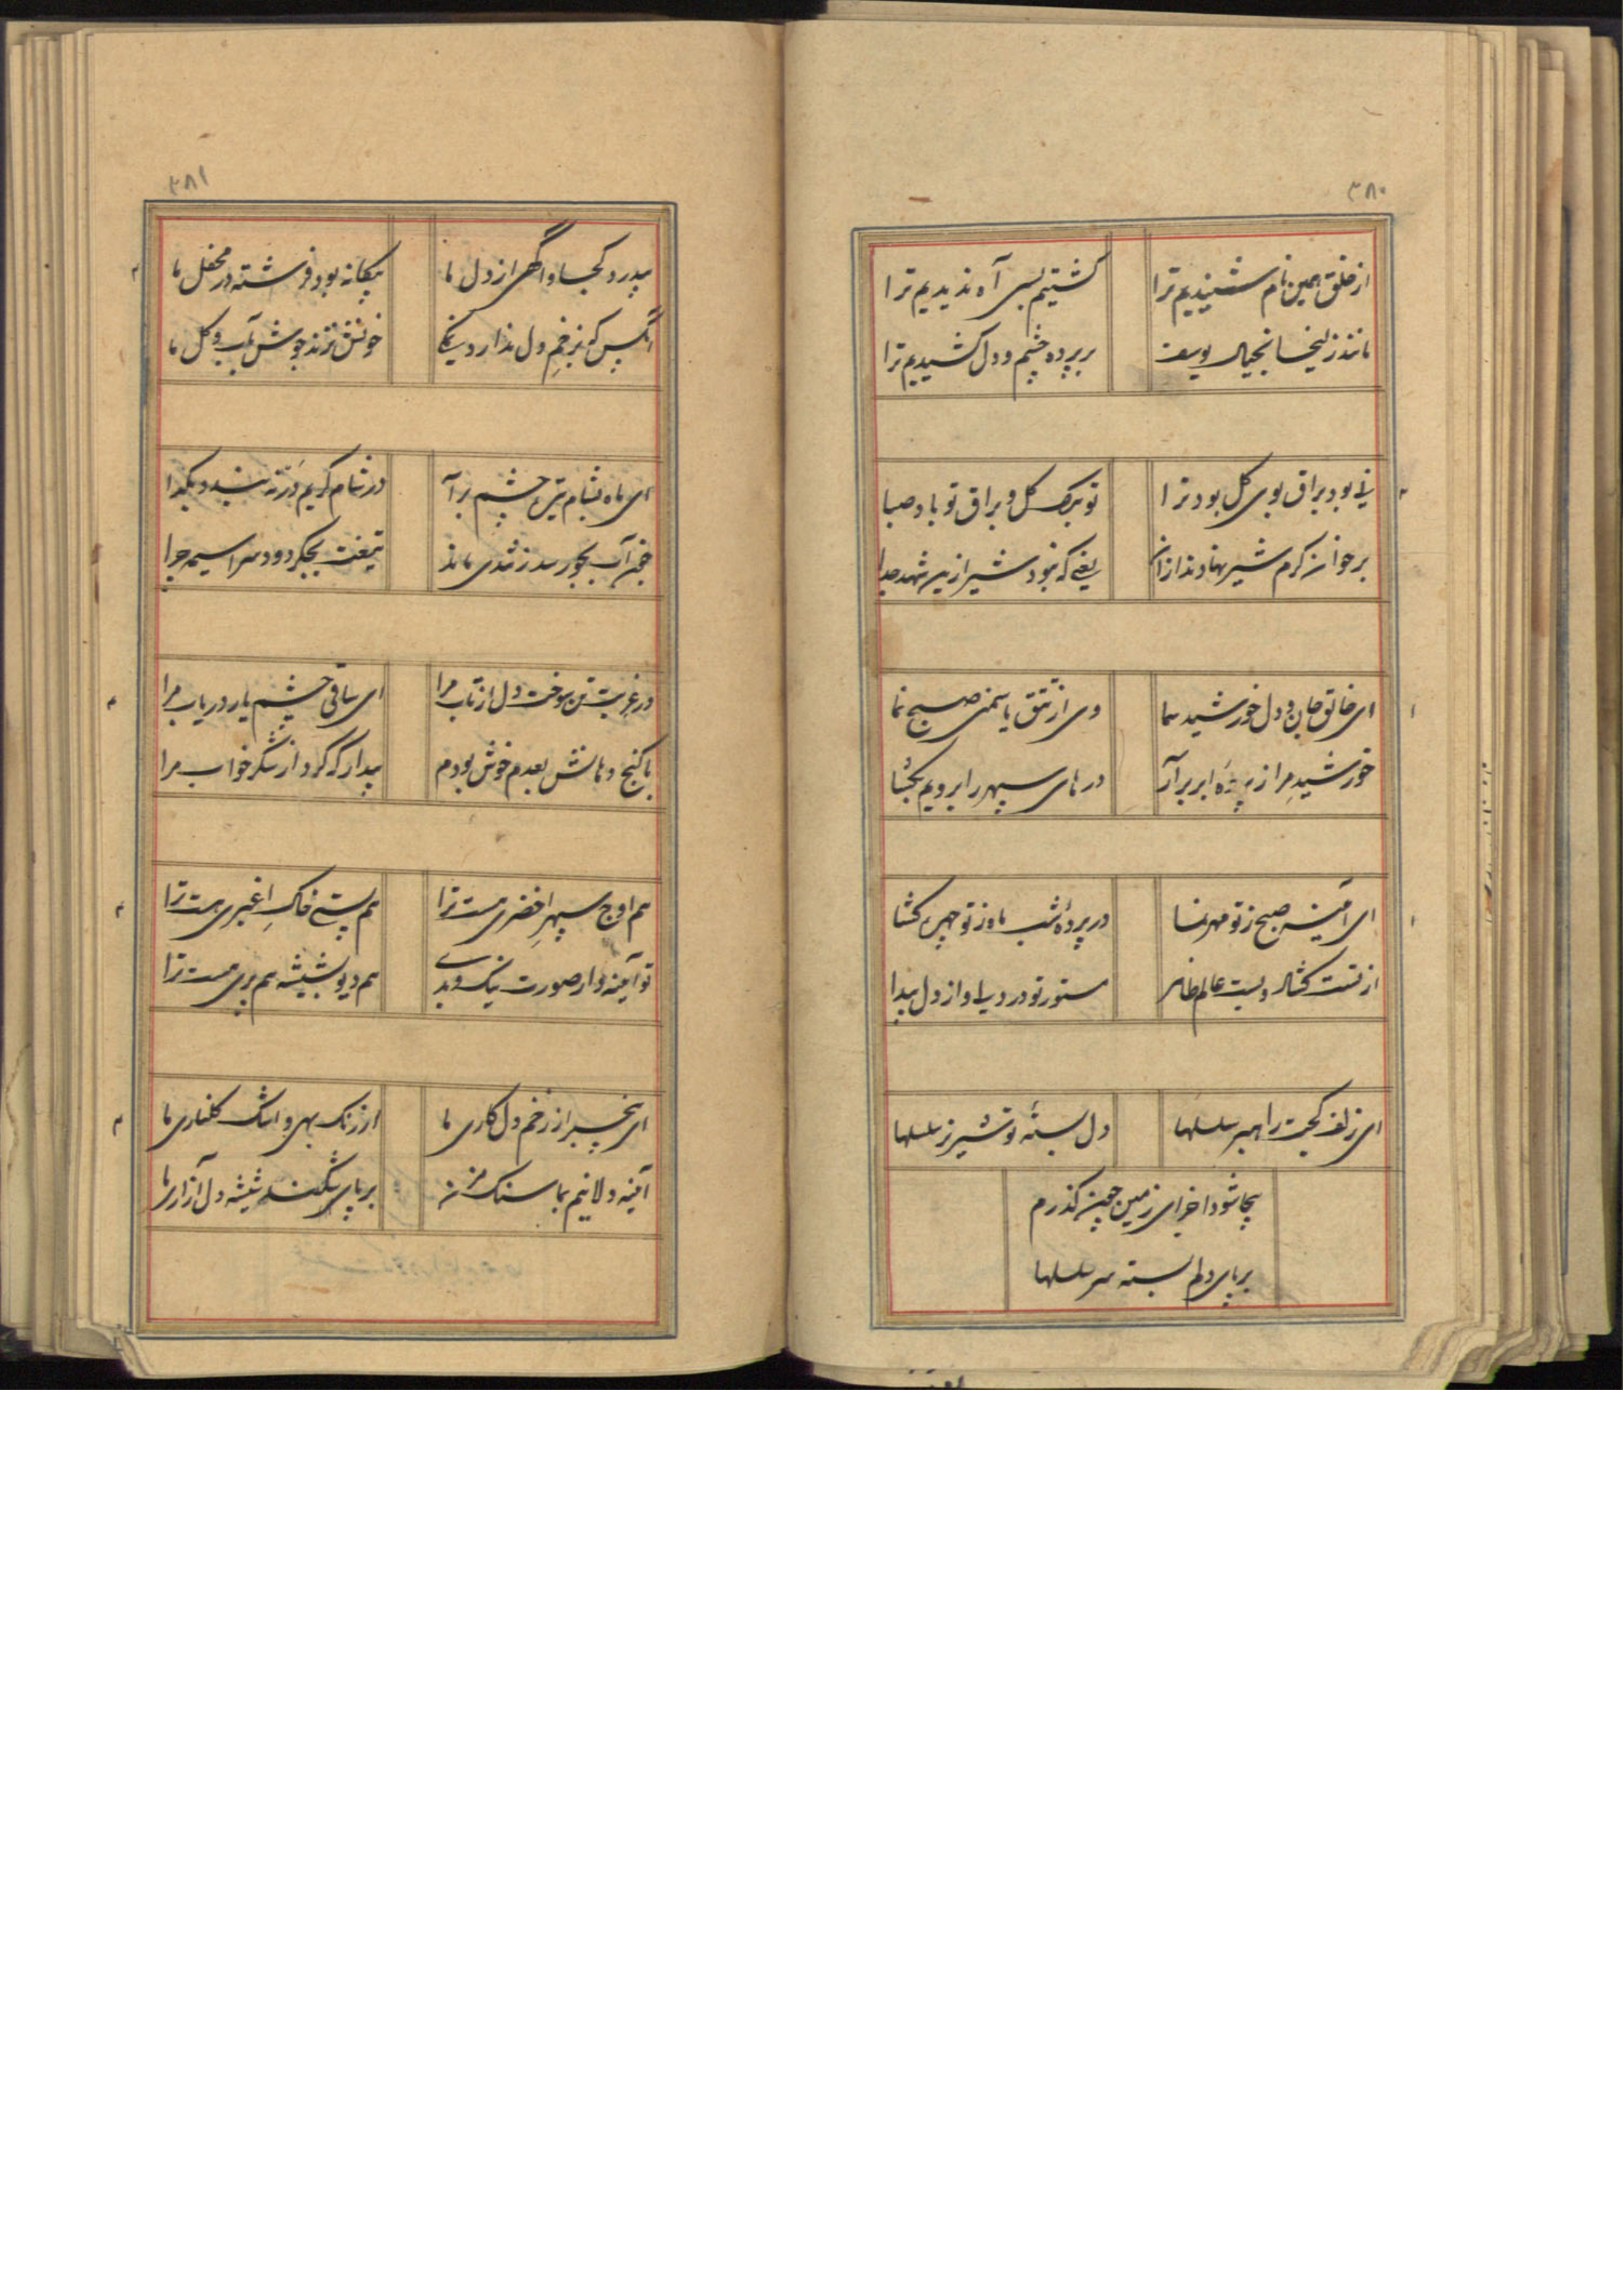 ۳۸۰
از خلق همین نام شنیدیم ترا
گشتیم بسی آه ندیدیم ترا
مانند زلیخا بخیال یوسف
بر پرده چشم و دل کشیدیم ترا
نی بود براق بوی گل بود ترا
تو برک گل و براق تو باد صبا
بر خوان کرم شیر نهادند ازان
یعنی که نبود شیر ازین شهد جدا
ای خالق جان و دل خورشید سما
وی از تتق یاسمنی صبح نما
خورشید مرا ز پرده ابر برآر
درهای سپهر را برویم بگشا
ای آینه صبح ز تو مهرنما
در پرده شب ماه ز تو چهره کشا
از تست کشاد و بست عالم ظاهر
مستور تو در دیده و از دل پیدا
ای زلف کجت راهبر سلسلها
دل بسته تو شیر ز سلسلها
اجزای زمین چین گذرم
بر پای دلم بسته سر سلسلها
۳۸۱
بیدرد کجا و آگهی از دل ما
بیگانه بود فرشته در محفل ما
آنکس که ز زخم دل ندارد نمکی
خونش نزند جوش بآب و گل ما
ای ماه بشام تیره چشم برآ
در شام کریم در نه بندد بگدا
تیغت بجگر دود سراسیمه چرا
در غربت تن سوخت دل از تاب مرا
ای ساقی چشم یار دریاب مرا
با کنج دهانش بعدم خوش بودم
بیدار که کرد از شکر خواب مرا
هم اوج سپهر اخضری هست ترا
هم پستی خاک اغبری هست ترا
تو آینه وار صورت نیک و بدی
هم دیو بشیشه هم پری هست ترا
ای بیخبر از زخم دل کاری ما
از رنک بهی و اشک گلناری ما
آئینه دلانیم بما سنک مزن
بر پای شکسته شیشه دل آزاری ما